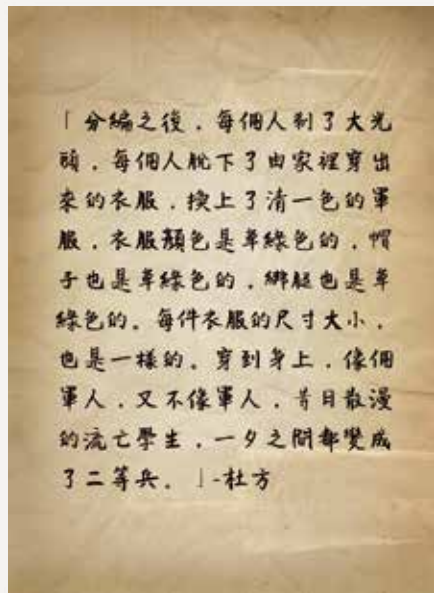 「分編之後，每個人剃了大光
頭，每個人脫下了由家裡穿出
來的衣服，換上了清一色的軍
服，衣服顏色是草綠色的，帽
子也是草綠色的，綁腿也是草
綠色的。每件衣服的尺寸大小，
也是一樣的。穿到身上，像個
軍人，又不像軍人，昔日散漫
的流亡學生，一夕之間都變成
了二等兵。」-杜方